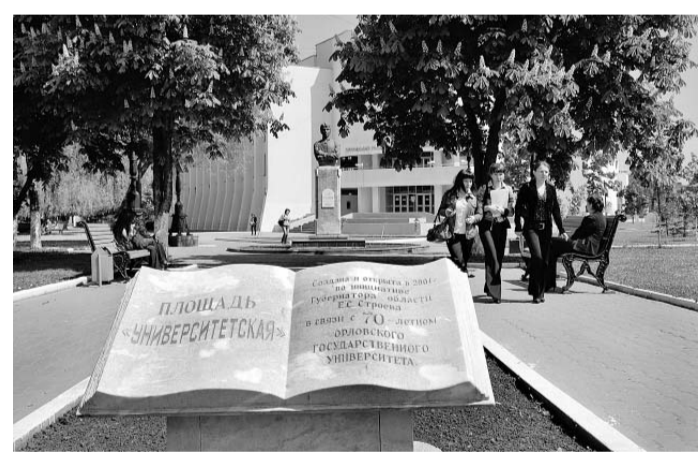 ПЛОЩАДЬ
«УНИВЕРСИТЕТСКАЯ»
Создана и открыта в 2001
по инициативе
Губернатора области
Е.С. Строева
в связи с 70-летием
ОРЛОВСКОГО
ГОСУДАРСТВЕННОГО
УНИВЕРСИТЕТА